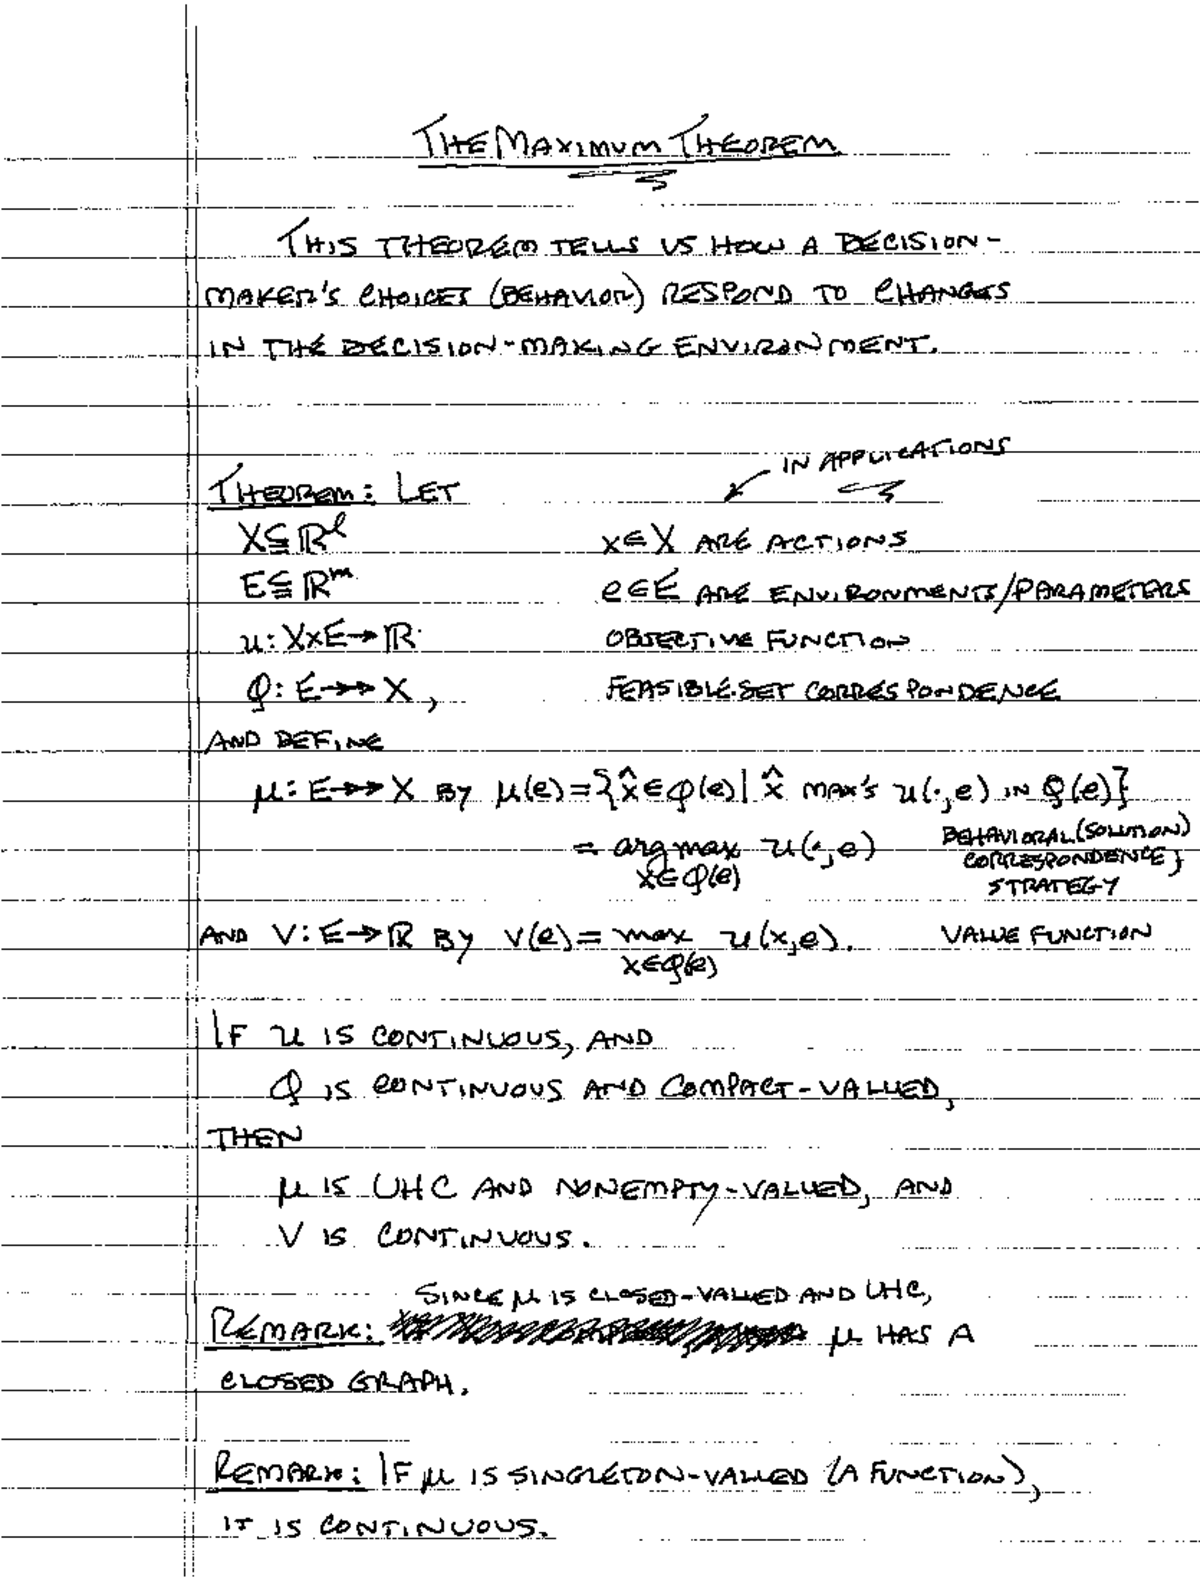 THE MAXIMUM THEOREM
THIS THEOREM TELLS US HOW A DECISION-
MAKER'S CHOICES (BEHAVIOR) RESPOND TO CHANGES
IN THE DECISION-MAKING ENVIRONMENT.
IN APPLICATIONS
THEOREM: LET
X ⊆ ℝˡ x ∈ X ARE ACTIONS
E ⊆ ℝᵐ e ∈ E ARE ENVIRONMENTS/PARAMETERS
u: X×E → ℝ OBJECTIVE FUNCTION
φ: E ↠ X, FEASIBLE-SET CORRESPONDENCE
AND DEFINE
μ: E ↠ X BY μ(e) = {x̂ ∈ φ(e) | x̂ MAX'S u(·,e) IN φ(e)}
= arg max u(·,e) BEHAVIORAL (SOLUTION)
x ∈ φ(e) CORRESPONDENCE;
STRATEGY
AND V: E → ℝ BY V(e) = max u(x,e). VALUE FUNCTION
x ∈ φ(e)
IF u IS CONTINUOUS, AND
φ IS CONTINUOUS AND COMPACT-VALUED,
THEN
μ IS UHC AND NONEMPTY-VALUED, AND
V IS CONTINUOUS.
SINCE μ IS CLOSED-VALUED AND UHC,
REMARK: μ HAS A
CLOSED GRAPH.
REMARK: IF μ IS SINGLETON-VALUED (A FUNCTION),
IT IS CONTINUOUS.